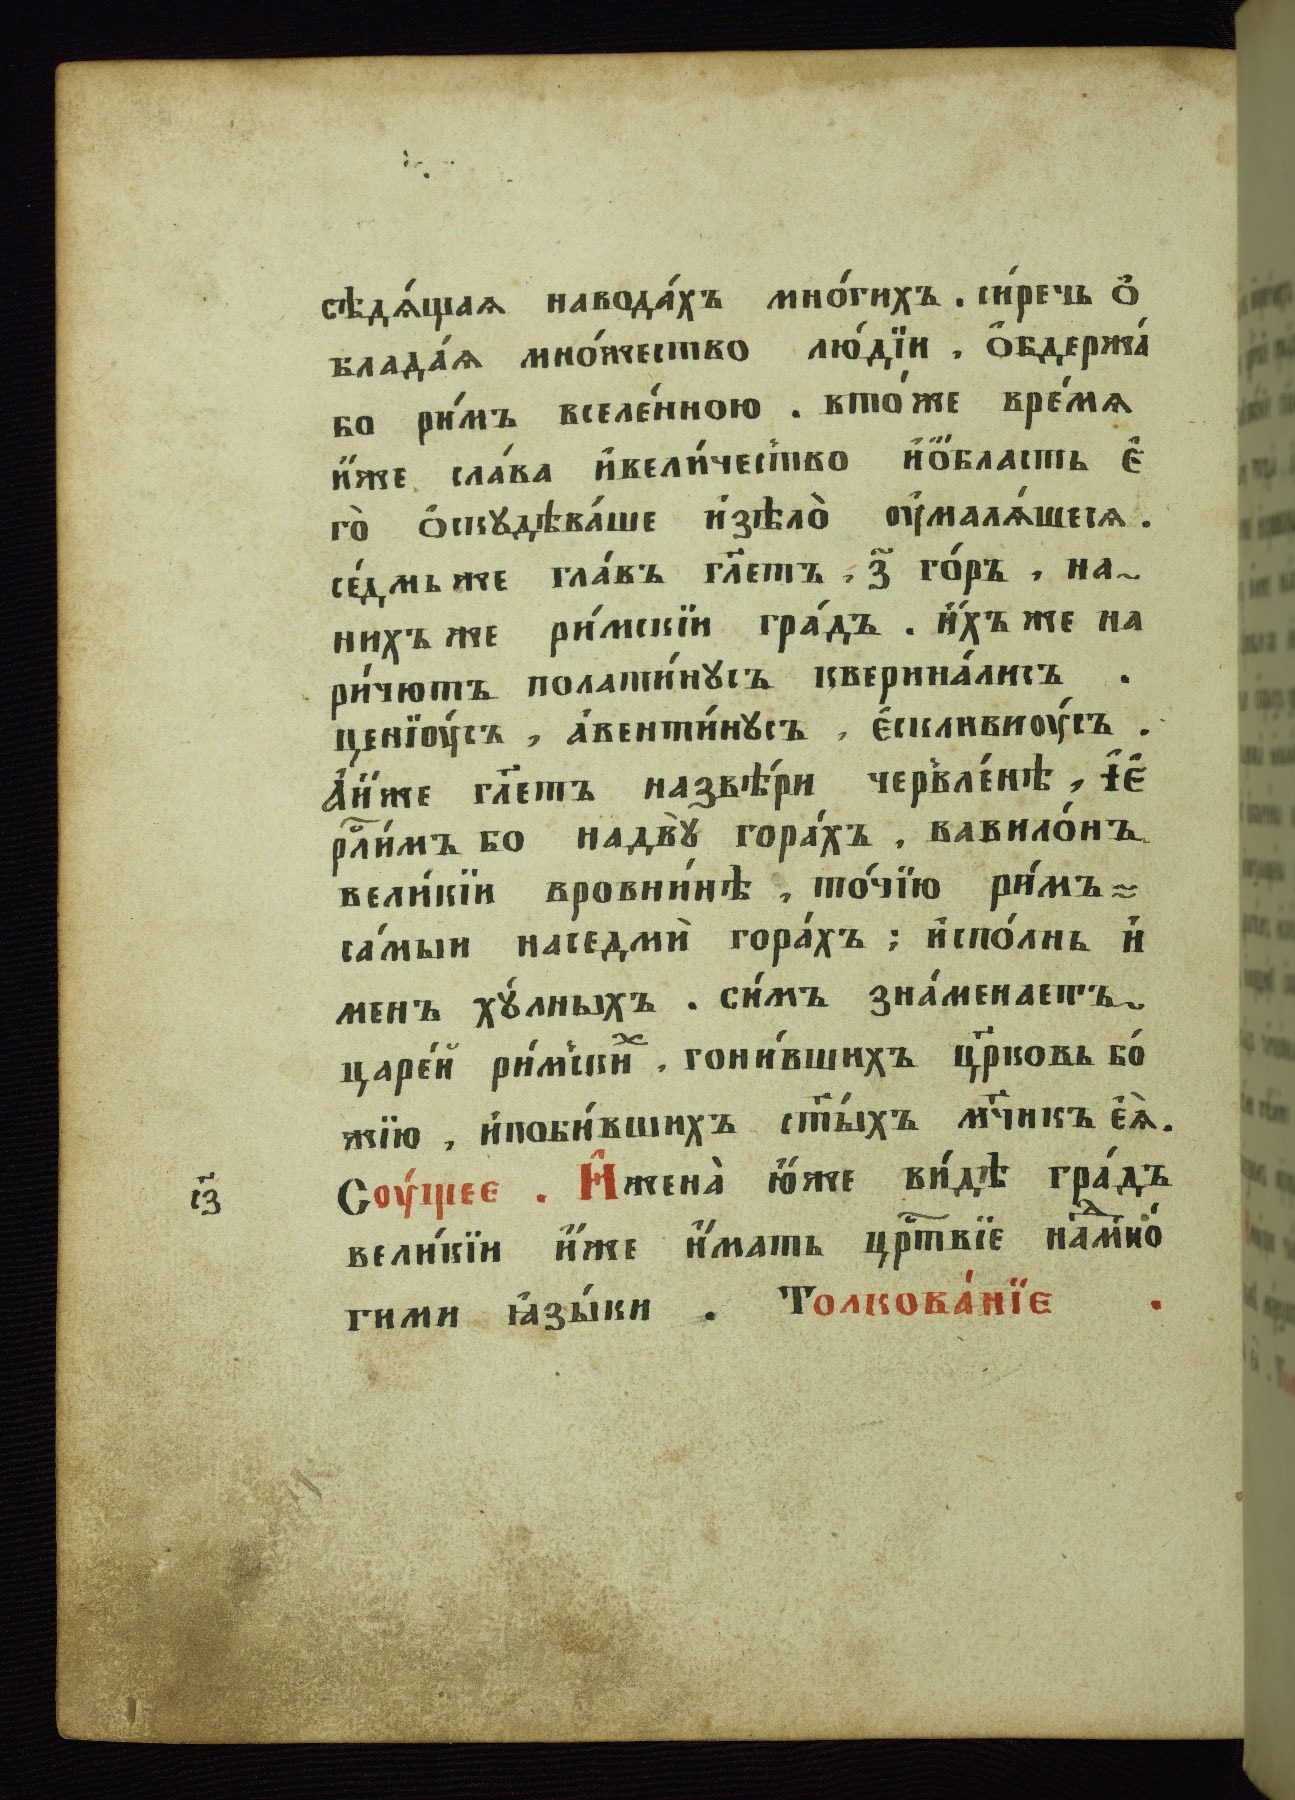 сѣдѧ́щаѧ навода́хъ мно́гихъ . си́речь ѻ҆
блада́ѧ мно́жество лю́дїи , ѻ҆бдержа́
бо ри́мъ вселе́нною . кто́же вре́мѧ
и҆́же сла́ва и҆вели́чес̾тво и҆ѻ҆́бласть є҆
го̀ ѻ҆скꙋдѣва́ше и҆зѣло̀ оу҆малѧ́шесѧ .
се́дмьже гла́въ гл҃етъ , з҃ го́ръ , на~
нихъже ри́мскїи гра́дъ . и҆́хъже на
ри́чютъ полати́нꙋсъ квєрина́лисъ .
ценїоу́съ , а҆венти́нꙋсъ , є҆скливиоу́съ .
А҆и҆́же гл҃етъ назвѣ́ри черв̾ле́нѣ , і҆є҆
рⷭ҇ли́мъ бо надвꙋ̀ гора́хъ , вавило́нъ
вели́кїи вровни́нѣ , то́чїю ри́мъ~
са́мыи населмѝ гора́хъ ; и҆спо́лнь и҆
менъ хꙋ́лныхъ . си́мъ зна́менаетъ~
царе́й ри́мс̾киⷯ , гони́вшихъ цр҃ковь бо́
жїю , и҆поби́вшихъ ст҃ы́хъ мч҃икъ є҆ѧ̀ .
с҃з Соу́щеє . И҆жена̀ ю҆́же ви́дѣ гра́дъ
вели́кїи и҆́же и҆́мать црⷭ҇твїе наⷣмно́
гими ꙗ҆зы́ки . Толкова́нїє .